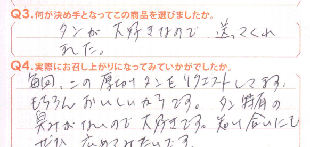 Q3.何が決め手となってこの商品を選びましたか。
タンが大好きなので 送ってくれ
れた。
Q4.実際にお召し上がりになってみていかがでしたか。
毎回、この厚切りタンをリクエストしてます。
もちろんおいしいからです。タン特有の
臭みがないので大好きです。知り合いにも
ぜひ広めてみたいです。